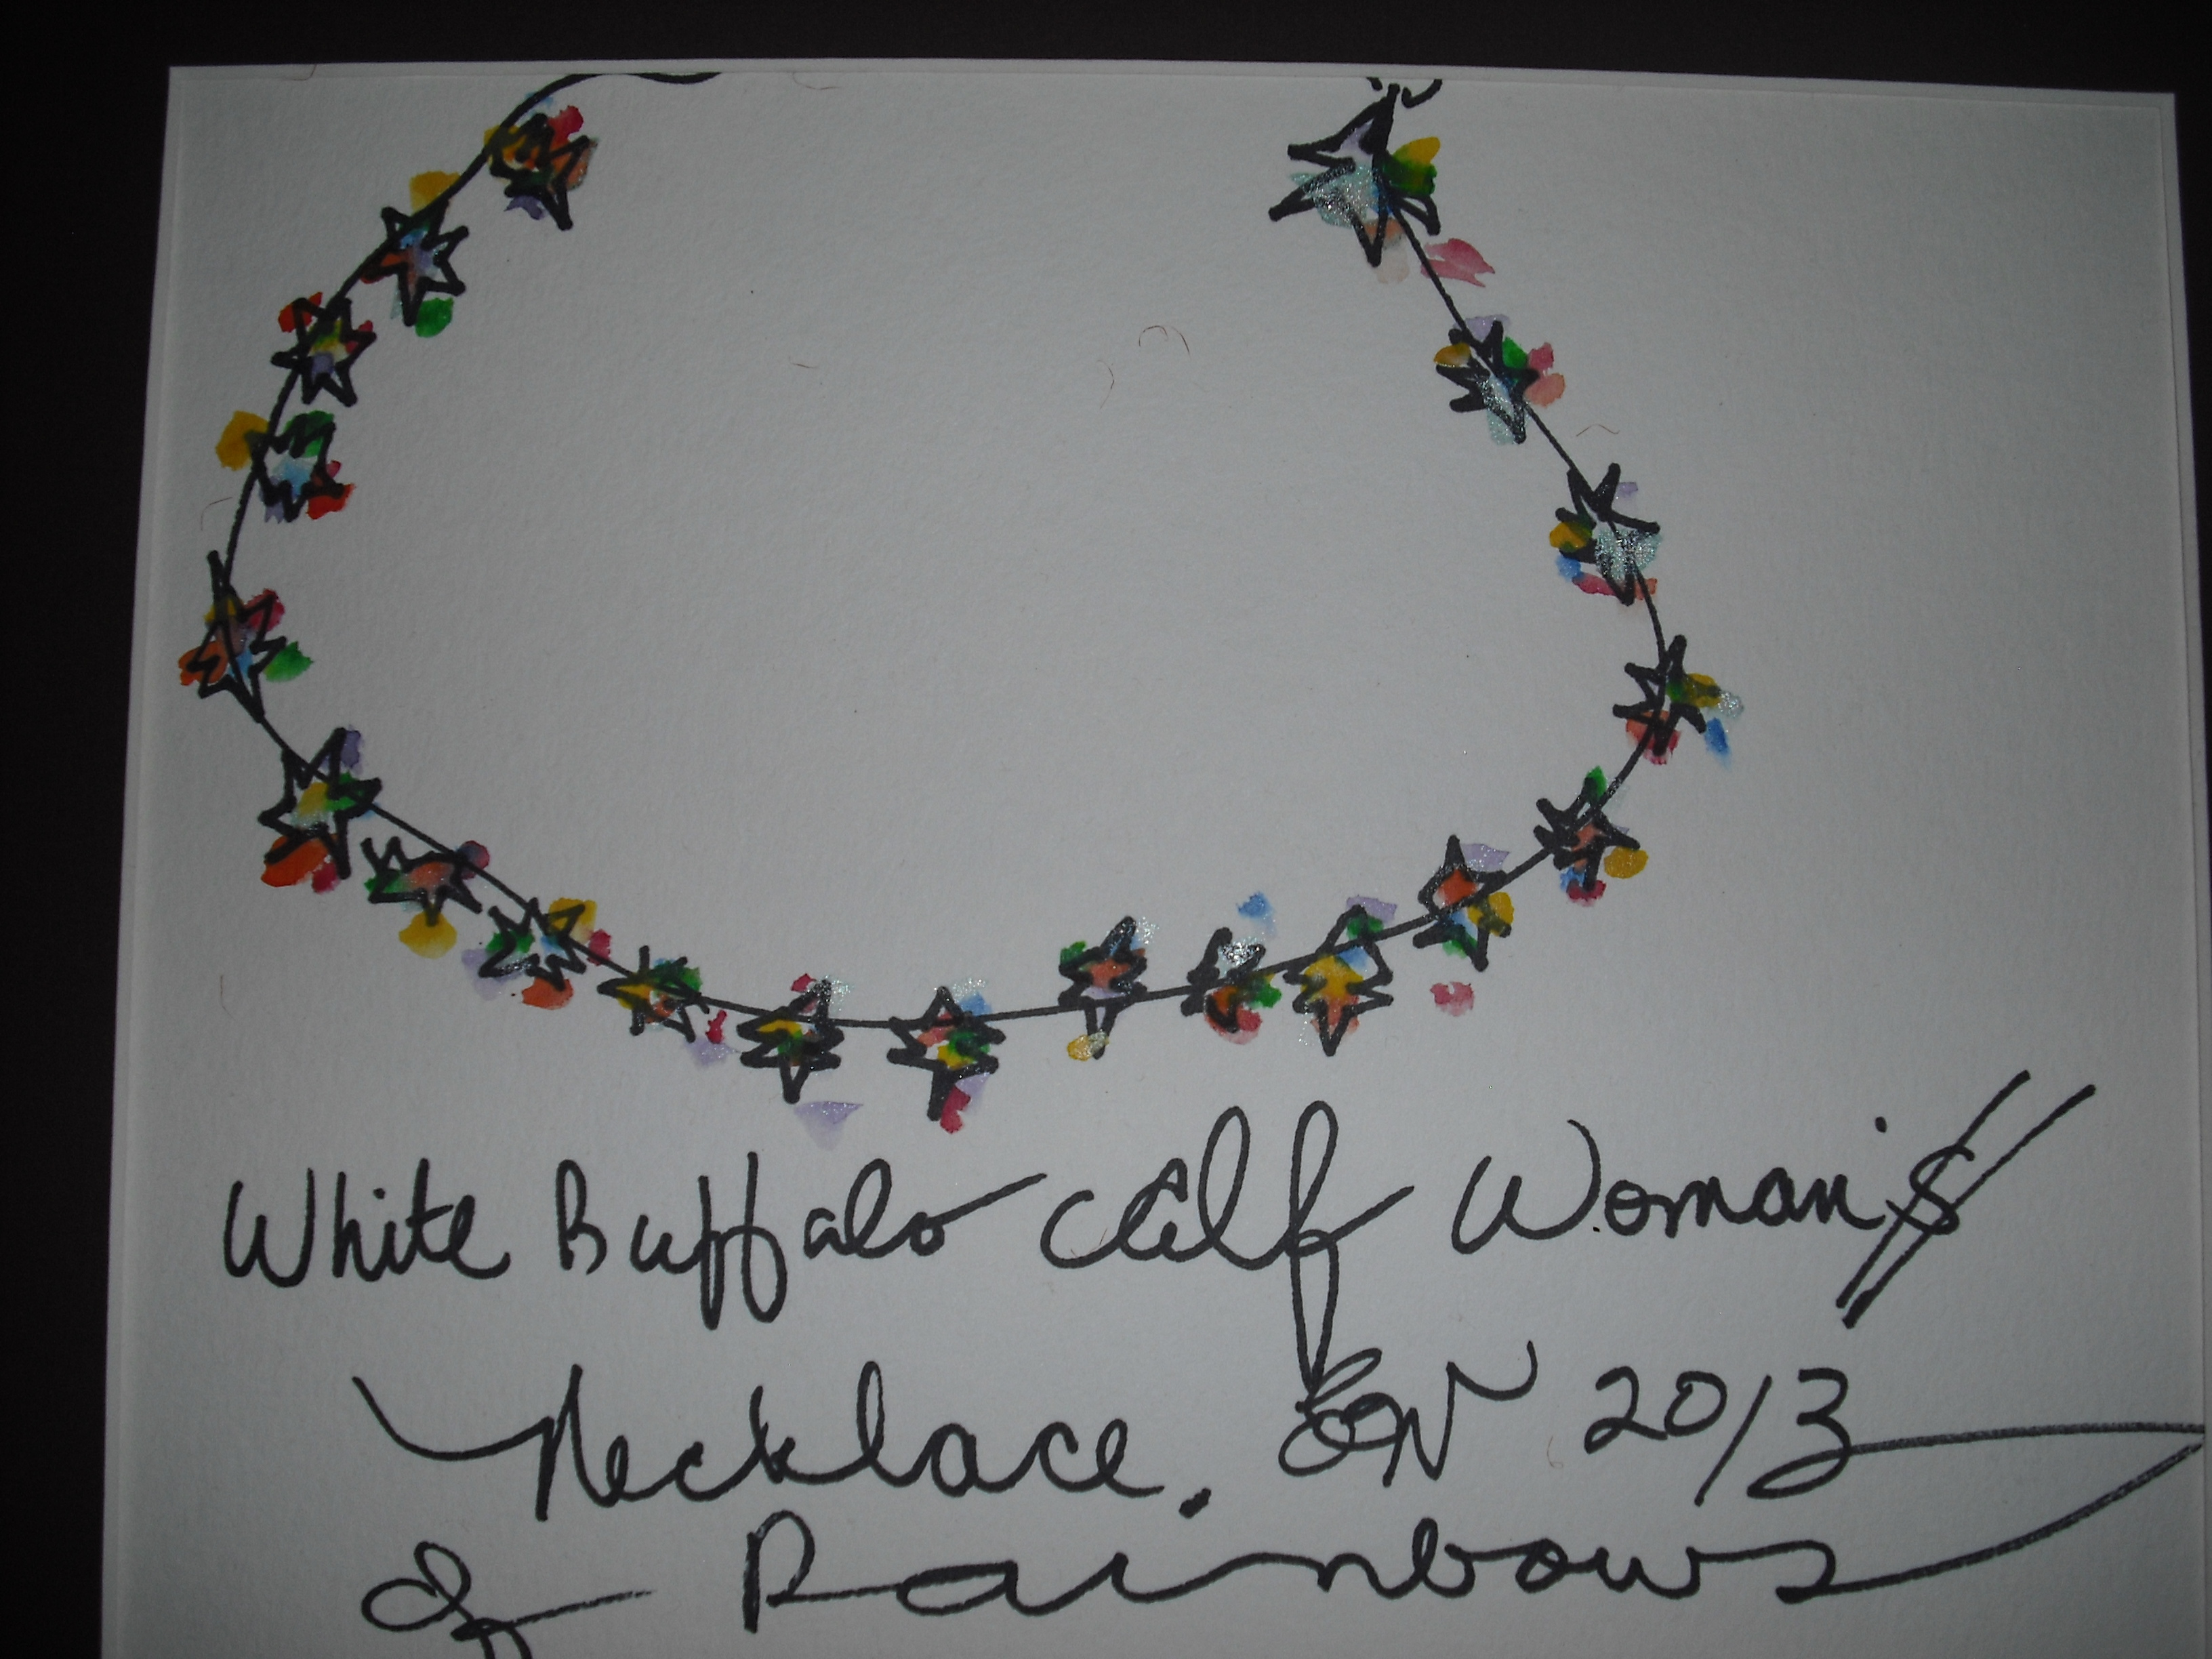 White Buffalo Calf Woman's
Necklace. EN 2013
of Rainbows